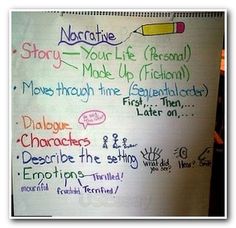 Narrative
• Story — Your Life (Personal)
Made Up (Fictional)
• Moves through time (Sequential order)
First,... Then,...
Later on,...
• Dialogue
• Characters
• Describe the setting
What did you see? Hear? Smell
• Emotions Thrilled!
mournful frustrated Terrified!